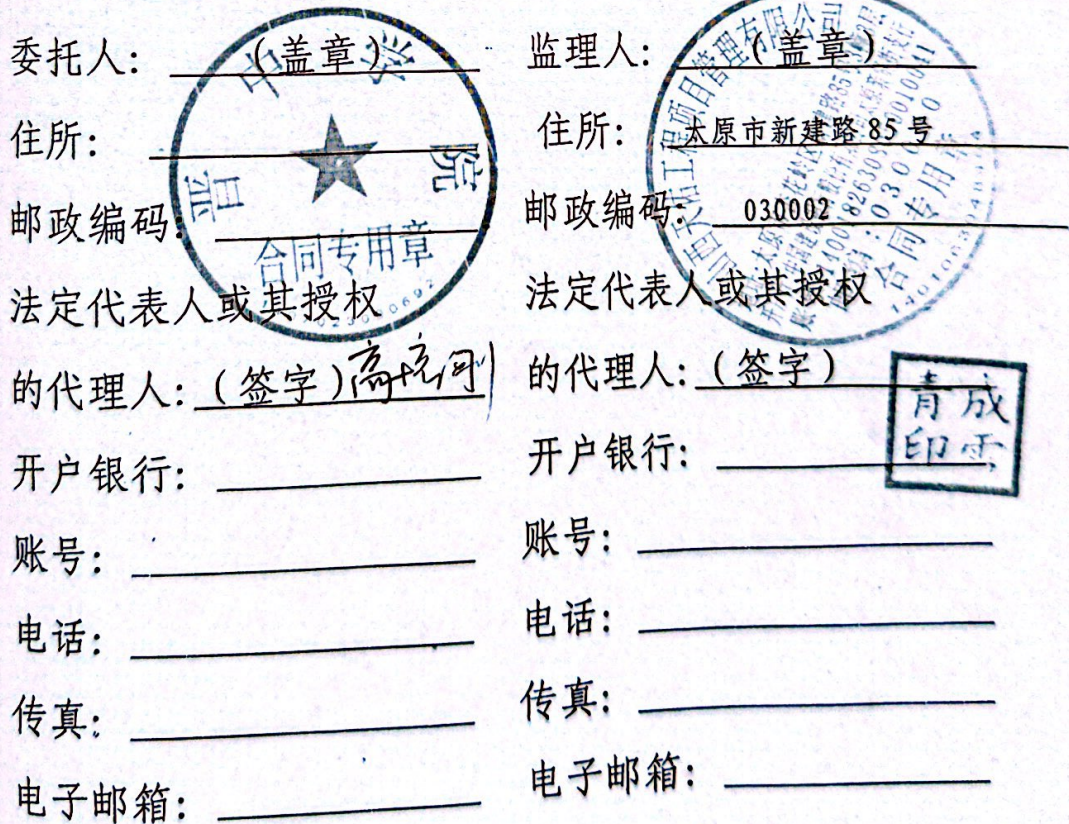 委托人：（盖章）
住所：
邮政编码：
法定代表人或其授权
的代理人：（签字）高
开户银行：
账号：
电话：
传真：
电子邮箱：
晋中学院
合同专用章
监理人：（盖章）
住所：太原市新建路 85 号
邮政编码：030002
法定代表人或其授权
的代理人：（签字）
开户银行：
账号：
电话：
传真：
电子邮箱：
工程项目管理有限公司
合同专用章
成雲
青印